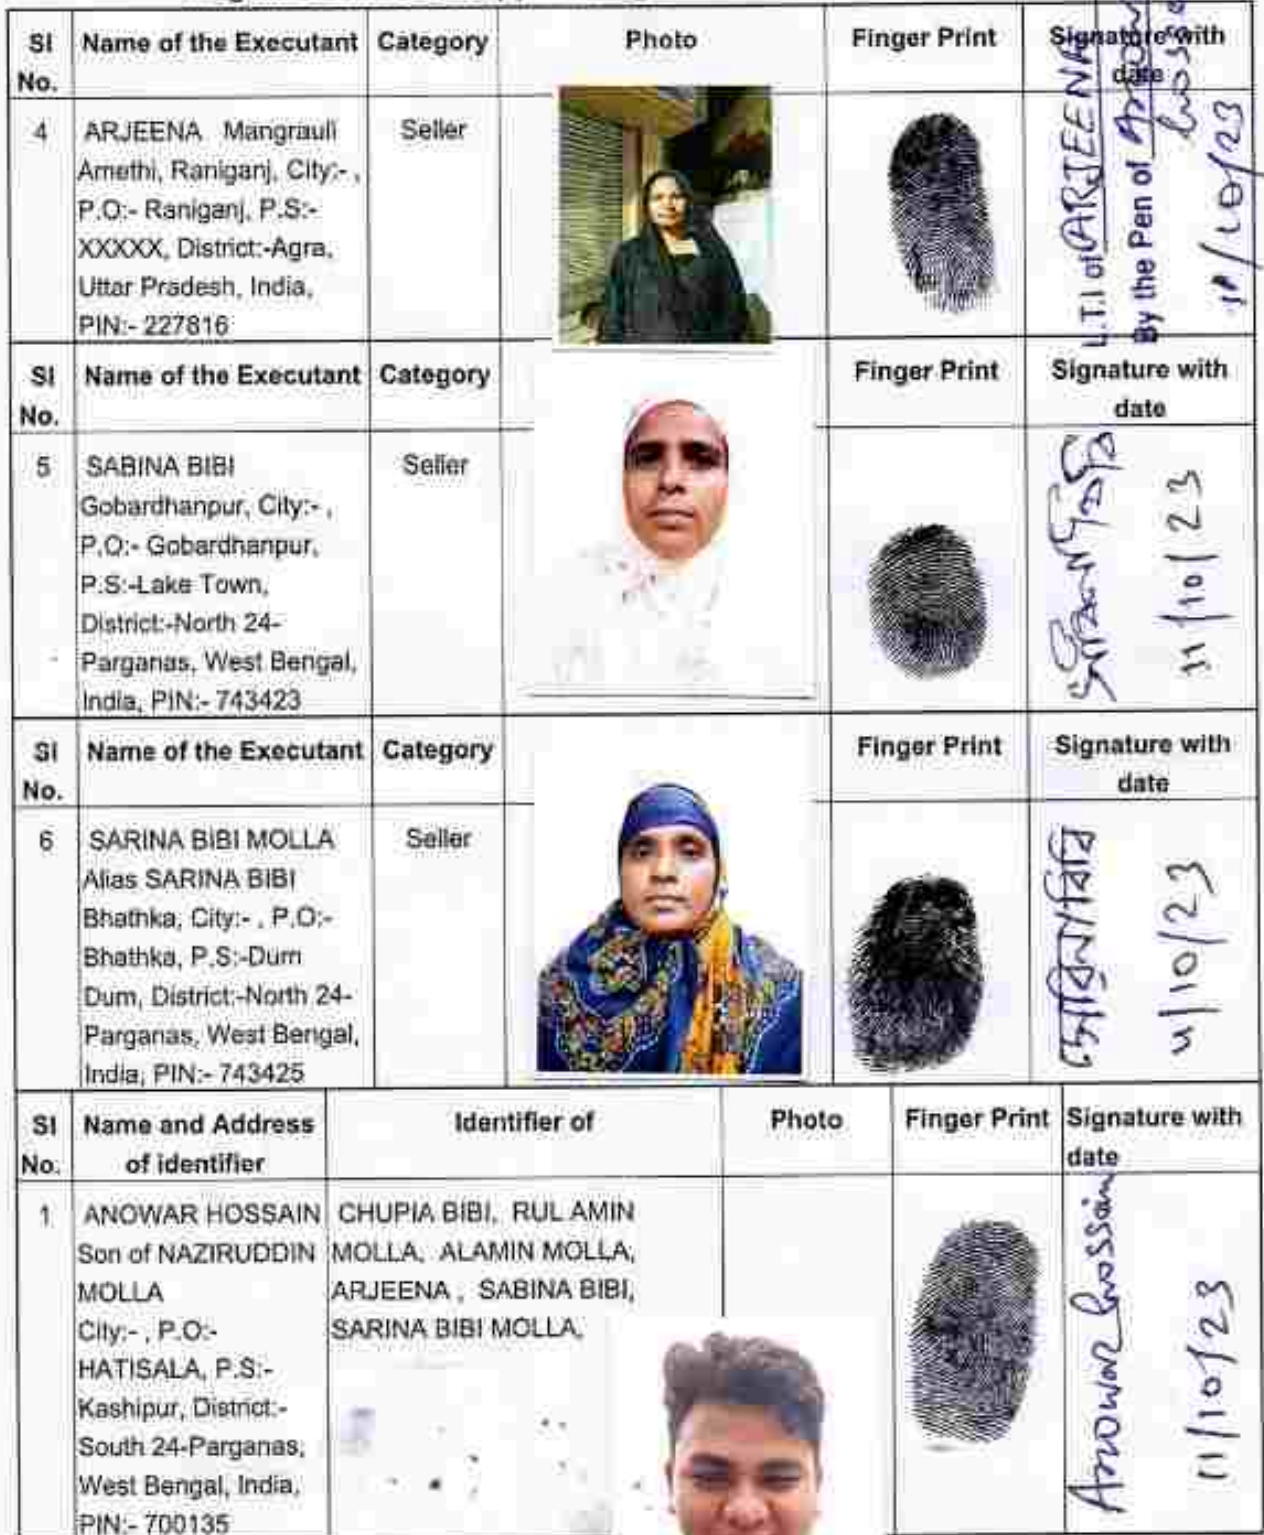 SI No.
Name of the Executant
Category
Photo
Finger Print
Signature with date
4
ARJEENA Mangrauli
Amethi, Raniganj, City:- ,
P.O:- Raniganj, P.S:-
XXXXX, District:-Agra,
Uttar Pradesh, India,
PIN:- 227816
Seller
L.T.I of ARJEENA
By the Pen of
SI No.
Name of the Executant
Category
Finger Print
Signature with
date
5
SABINA BIBI
Gobardhanpur, City:- ,
P.O:- Gobardhanpur,
P.S:-Lake Town,
District:-North 24-
Parganas, West Bengal,
India, PIN:- 743423
Seller
11/10/23
SI No.
Name of the Executant
Category
Finger Print
Signature with
date
6
SARINA BIBI MOLLA
Alias SARINA BIBI
Bhathka, City:- , P.O:-
Bhathka, P.S:-Dum
Dum, District:-North 24-
Parganas, West Bengal,
India, PIN:- 743425
Seller
SI No.
Name and Address
of identifier
Identifier of
Photo
Finger Print
Signature with
date
1
ANOWAR HOSSAIN
Son of NAZIRUDDIN
MOLLA
City:- , P.O:-
HATISALA, P.S:-
Kashipur, District:-
South 24-Parganas,
West Bengal, India,
PIN:- 700135
CHUPIA BIBI, RUL AMIN
MOLLA, ALAMIN MOLLA,
ARJEENA , SABINA BIBI,
SARINA BIBI MOLLA,
Anowar hossain
11/10/23